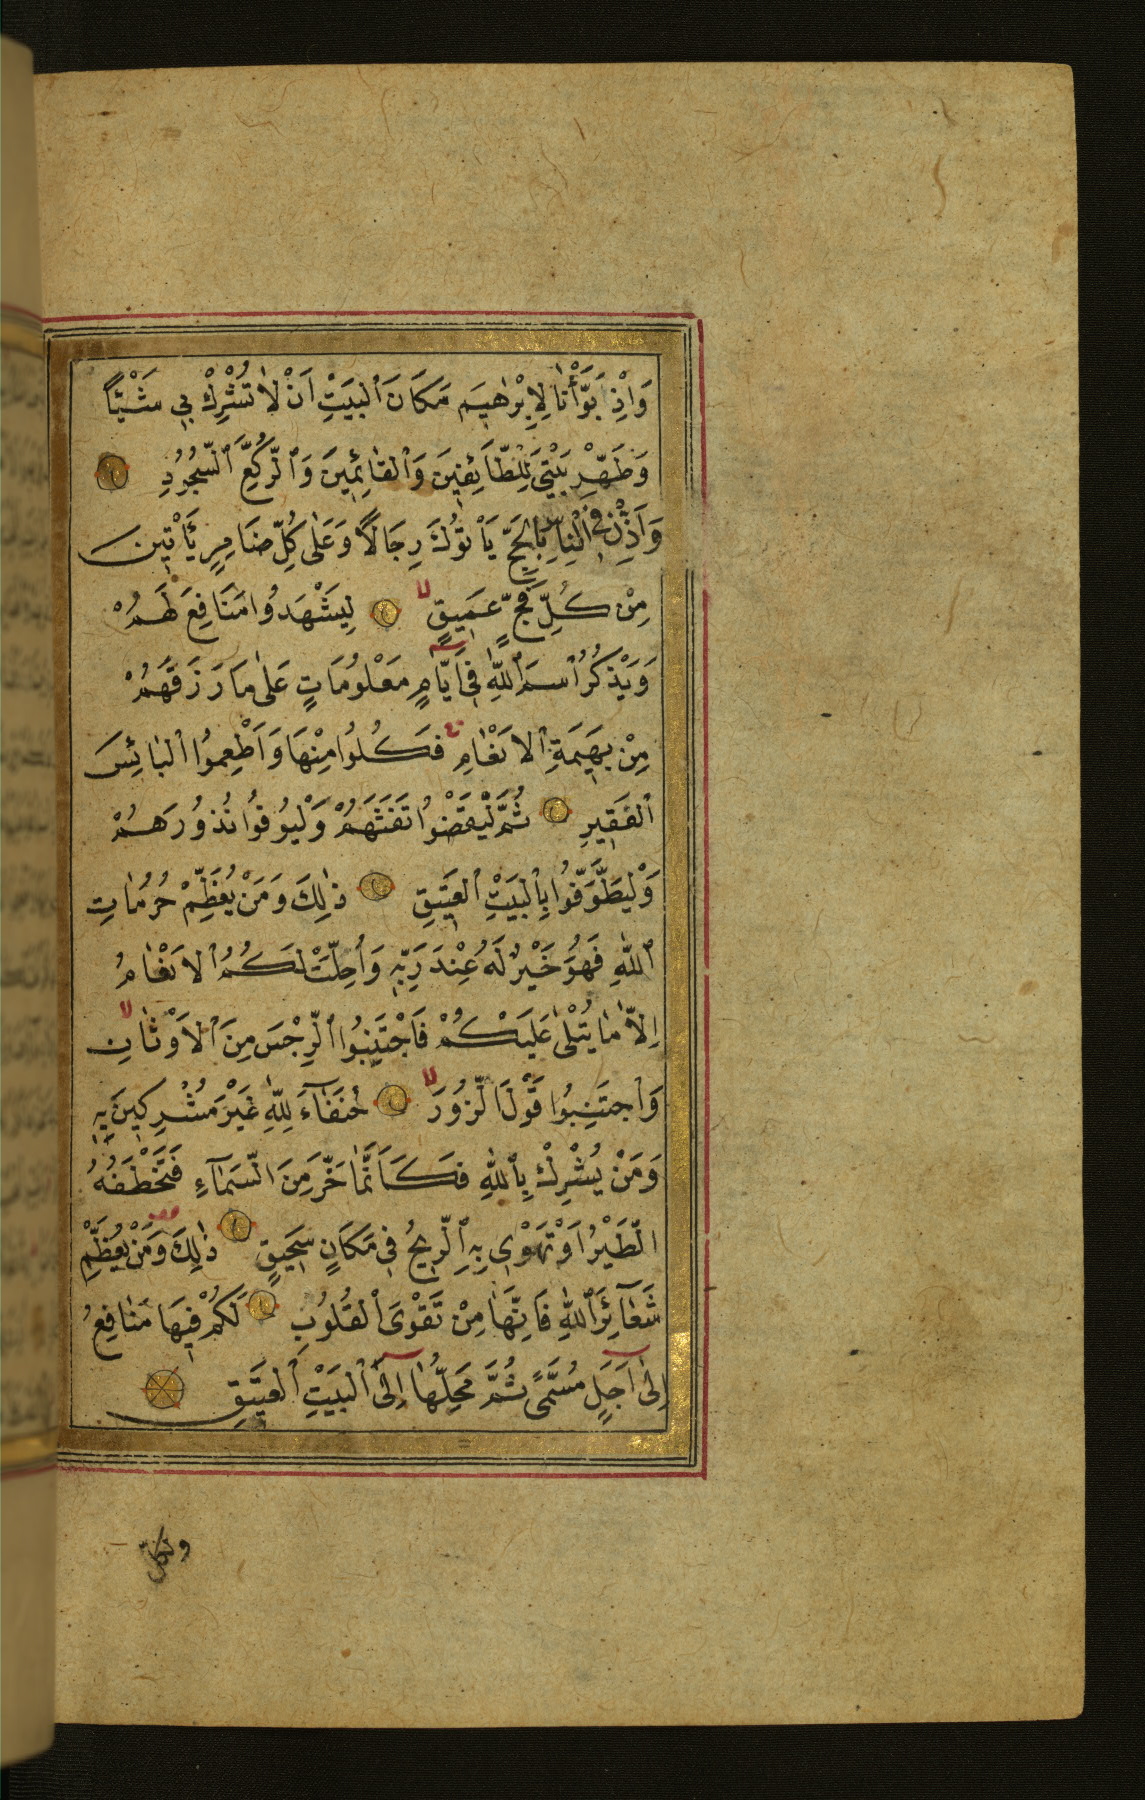 وَاِذْ بَوَّأْنَا لِاِبْرٰهِيمَ مَكَانَ ٱلْبَيْتِ اَنْ لَا تُشْرِكْ بِي شَيْئًا
وَطَهِّرْ بَيْتِيَ لِلطَّائِفِينَ وَٱلْقَائِمِينَ وَٱلرُّكَّعِ ٱلسُّجُودِ
وَاَذِّنْ فِي ٱلنَّاسِ بِٱلْحَجِّ يَأْتُوكَ رِجَالًا وَعَلٰى كُلِّ ضَامِرٍ يَأْتِينَ
مِنْ كُلِّ فَجٍّ عَمِيقٍ لا لِيَشْهَدُوا مَنَافِعَ لَهُمْ
وَيَذْكُرُوا ٱسْمَ ٱللّٰهِ فِي اَيَّامٍ مَعْلُومَاتٍ عَلٰى مَا رَزَقَهُمْ
مِنْ بَهِيمَةِ ٱلْاَنْعَامِ فَكُلُوا مِنْهَا وَاَطْعِمُوا ٱلْبَائِسَ
ٱلْفَقِيرِ ثُمَّ لْيَقْضُوا تَفَثَهُمْ وَلْيُوفُوا نُذُورَهُمْ
وَلْيَطَّوَّفُوا بِٱلْبَيْتِ ٱلْعَتِيقِ ذٰلِكَ وَمَنْ يُعَظِّمْ حُرُمَاتِ
ٱللّٰهِ فَهُوَ خَيْرٌ لَهُ عِنْدَ رَبِّهِ وَاُحِلَّتْ لَكُمُ ٱلْاَنْعَامُ
اِلَّا مَا يُتْلٰى عَلَيْكُمْ فَٱجْتَنِبُوا ٱلرِّجْسَ مِنَ ٱلْاَوْثَانِ لا
وَٱجْتَنِبُوا قَوْلَ ٱلزُّورَ لا حُنَفَآءَ لِلّٰهِ غَيْرَ مُشْرِكِينَ بِهِ
وَمَنْ يُشْرِكْ بِٱللّٰهِ فَكَاَنَّمَا خَرَّ مِنَ ٱلسَّمَآءِ فَتَخْطَفُهُ
ٱلطَّيْرُ اَوْ تَهْوِي بِهِ ٱلرِّيحُ فِي مَكَانٍ سَحِيقٍ ذٰلِكَ وَمَنْ يُعَظِّمْ
شَعَآئِرَ ٱللّٰهِ فَاِنَّهَا مِنْ تَقْوَى ٱلْقُلُوبِ لَكُمْ فِيهَا مَنَافِعُ
اِلٰى اَجَلٍ مُسَمًّى ثُمَّ مَحِلُّهَا اِلَى ٱلْبَيْتِ ٱلْعَتِيقِ
ولكل